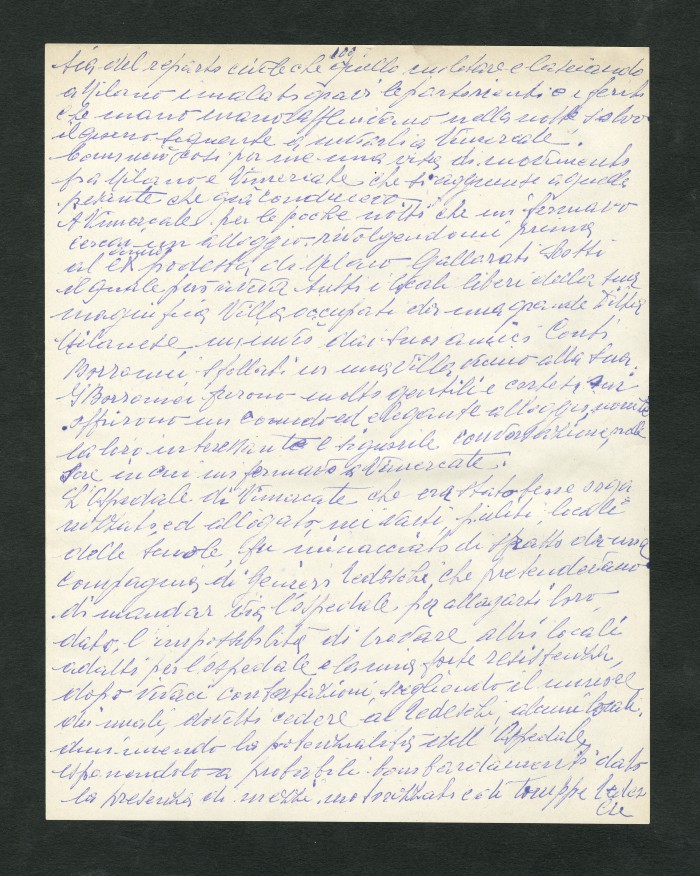 sia del reparto civile che quello militare e lasciando
a Milano i malati gravi le partorienti e i feriti
che mano mano affluivano nella notte salvo
il giorno seguente a Vimercate.
Cominciò così per me una vita di movimento
fra Milano e Vimercate che si aggiunse a quella
pesante che già conducevo.
A Vimercate per le poche notti che mi fermavo
cercai un alloggio rivolgendomi prima
al ex podestà di Milano Gallarati Scotti
il quale però aveva tutti i locali liberi della sua
magnifica Villa occupati da una grande Ditta
Milanese, dai suoi amici Conti
Borromeo sfollati in una Villa vicino alla sua.
I Borromeo furono molto gentili e cortesi mi
offrirono un comodo ed elegante alloggio,
la loro interessante e signorile conversazione, nelle
sere in cui mi fermavo a Vimercate.
L'Ospedale di Vimercate che era stato bene
ed allogato, nei vasti, puliti, locali
delle Scuole, fu minacciato di sfratto da una
compagnia di Genieri Tedeschi, che pretendevano
di mandar via l'ospedale per allogarsi loro,
dato l'impossibilità di trovare altri locali
adatti per l'ospedale e la mia forte resistenza,
dopo vivaci contestazioni, scegliendo il minore
dei mali, dovetti cedere ai Tedeschi, alcuni locali,
diminuendo la potenzialità dell'Ospedale,
esponendolo a probabili bombardamenti dato
la presenza di mezzi motorizzati e di truppe tedes
che